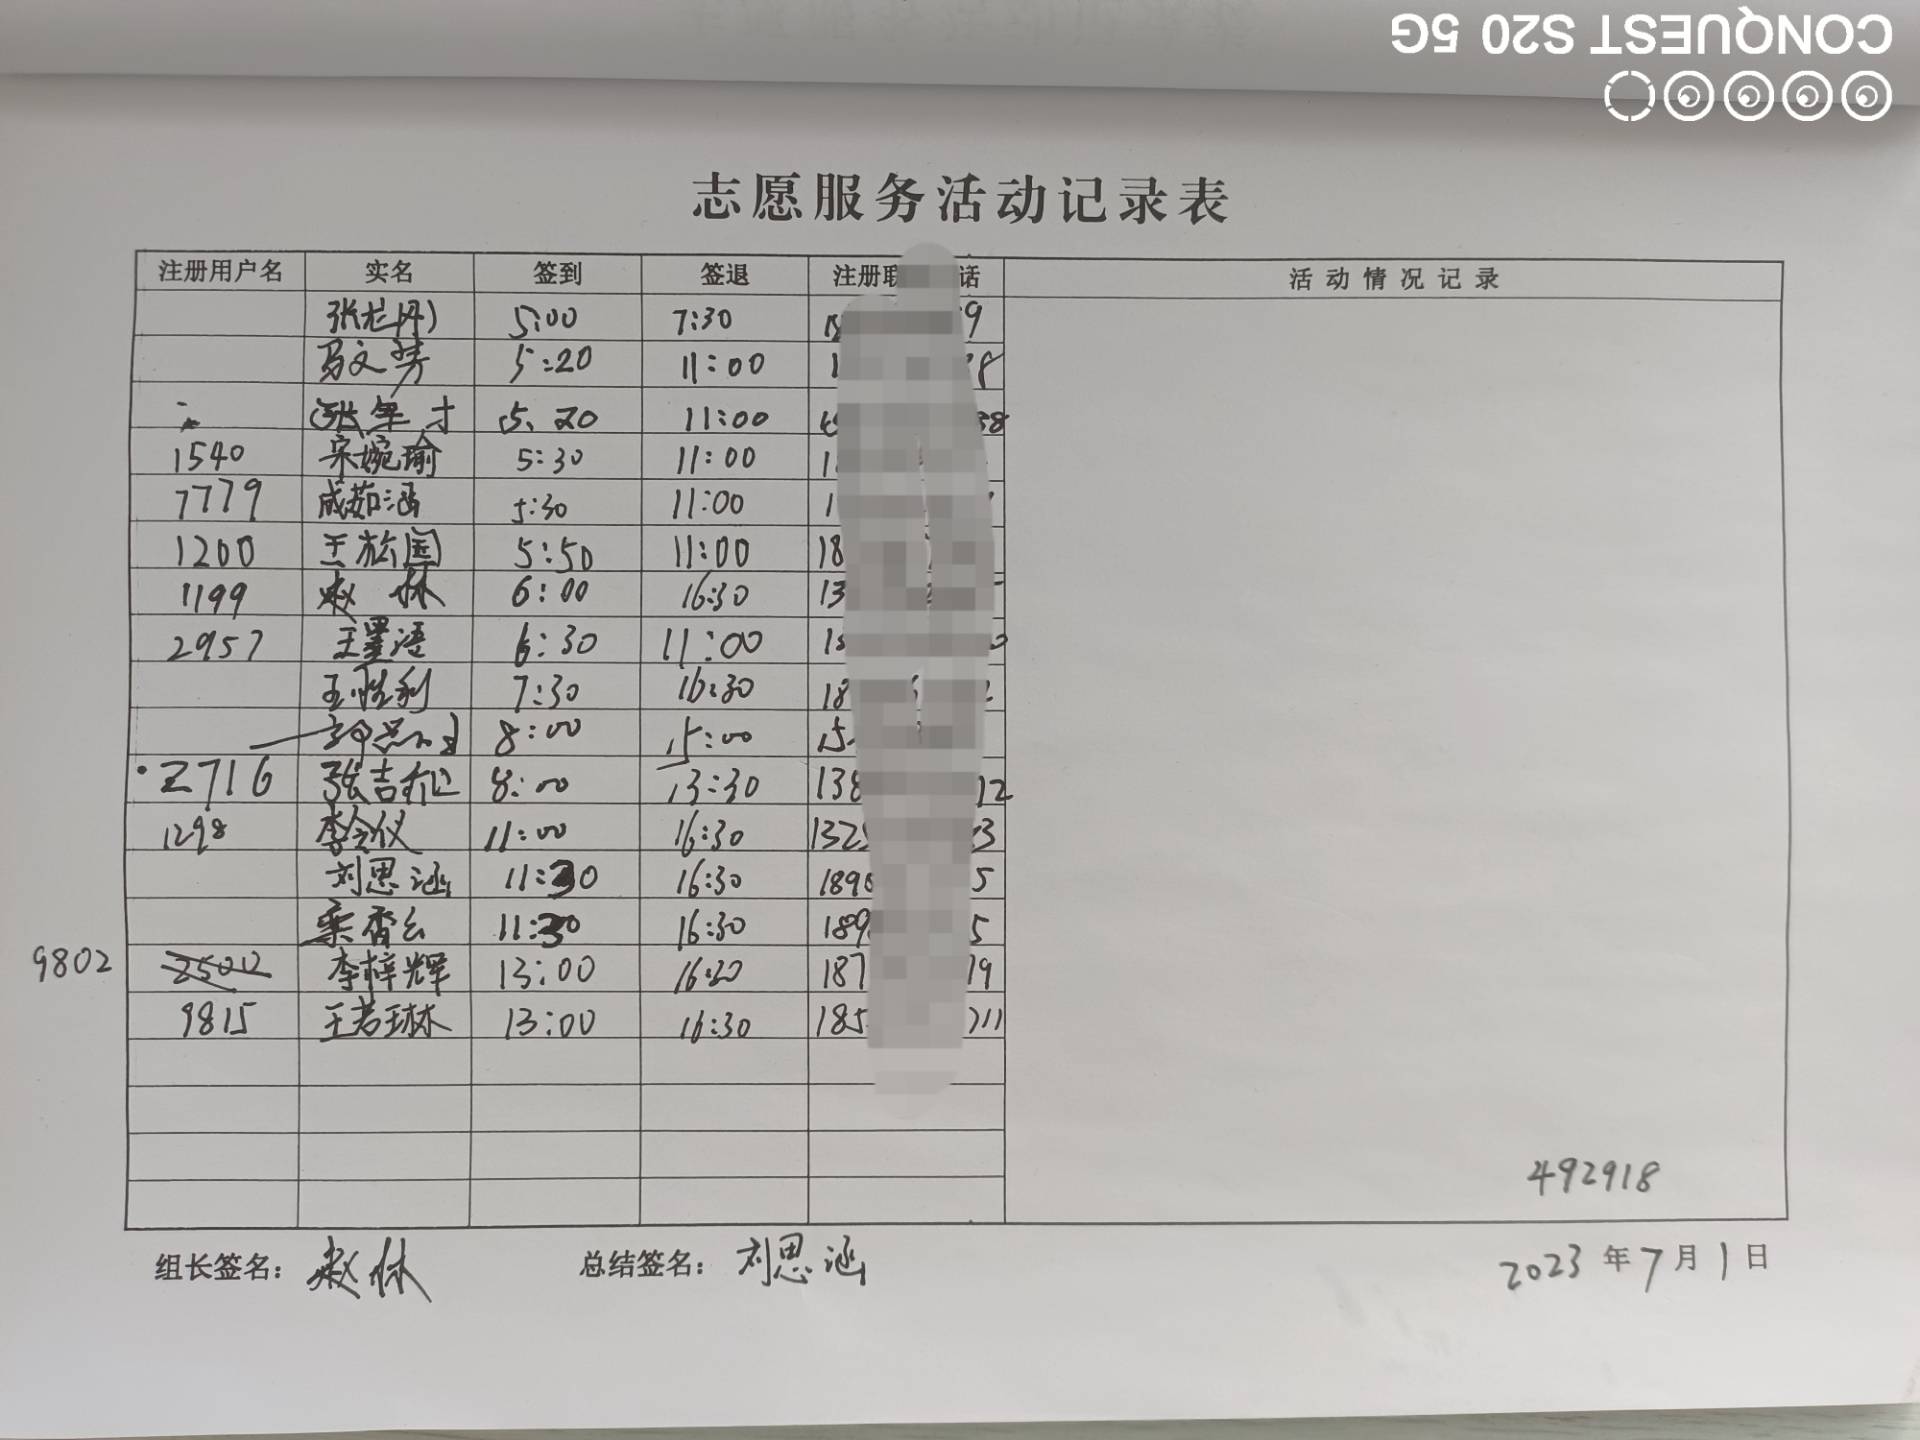 CONQUEST S20 5G
志愿服务活动记录表
注册用户名 实名 签到 签退 注册联 话 活动情况记录
5:00 7:30 9
马文芳 5:20 11:00 1 8
张年才 5.20 11:00 38
1540 宋婉瑜 5:30 11:00 1
7779 成茹涵 5:30 11:00 1
1200 王於国 5:50 11:00 18
1199 赵林 6:00 16:30 13
2957 王墨语 6:30 11:00 18
王胜利 7:30 16:30 18 2
8:00 15:00 15
2716 张吉征 8:00 13:30 138 12
1298 李令仪 11:00 16:30 132 3
刘思涵 11:30 16:30 189 5
栾香云 11:30 16:30 189 5
9802 2500 李梓辉 13:00 16:30 187 19
9815 王若琳 13:00 16:30 185 711
492918
组长签名: 赵林 总结签名: 刘思涵 2023年7月1日